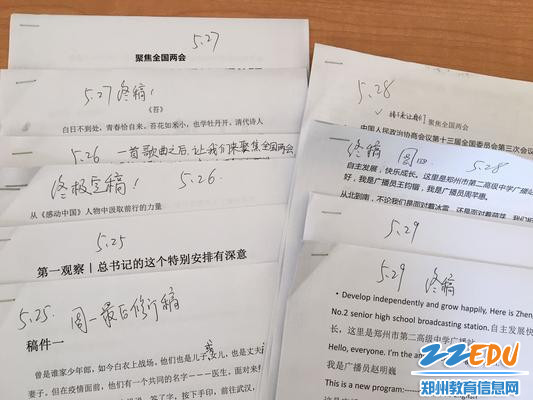 5.27
聚焦全国两会
5.27 终稿!
《苔》
白日不到处,青春恰自来。苔花如米小,也学牡丹开。清代诗人
5.26 一首歌曲之后,让我们来聚焦全国两会
终极定稿! 5.26.
从《感动中国》人物中汲取前行的力量
5.25
第一观察|总书记的这个特别安排有深意
5.25. 周一最后修订稿
稿件一
曾是谁家少年郎,如今白衣上战场。他们也是儿子女儿,也是丈夫
妻子。但在疫情面前,他们有一个共同的名字——医生。面对来势
签下了名字,按下手印,前往武汉,
5.28
接下来让我们聚焦全国两会
中国人民政治协商会议第十三届全国委员会第三次会议
终稿 周四 5.28
自主发展,快乐成长。这里是郑州市第二高级中学广播站
好,我是广播员王钧锴,我是广播员周芊惠。
从北到南,不论我们是面对着冰雪,还是面对着
5.29
5.29 终稿
• Develop independently and grow happily, Here is Zheng
No.2 senior high school broadcasting station.自主发展快
长,这里是郑州市第二高级中学广播站
Hello, everyone. I'm the an
我是广播员赵明巍
This is a new program:
22EDU
郑州教育信息网